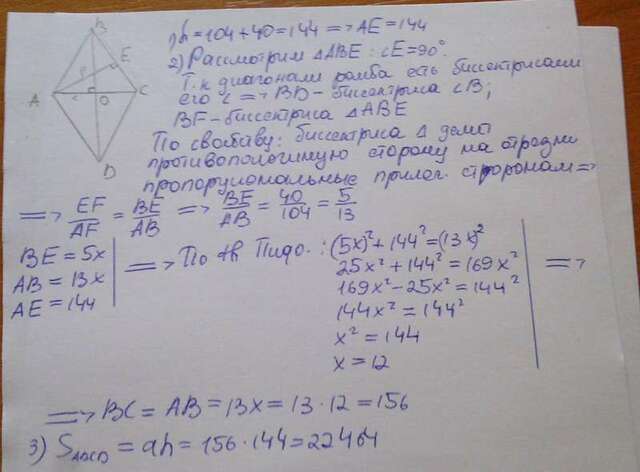 B
E
F
A
O
C
D
1) h = 104 + 40 = 144 => AE = 144
2) Рассмотрим △ABE: ∠E = 90°.
Т.к диагонали ромба есть биссектрисами
его ∠ => BD - биссектриса ∠B;
BF - биссектриса △ABE
По свойству: биссектриса △ делит
противоположную сторону на отрезки
пропорциональные прилег. сторонам =>
=> EF/AF = BE/AB => BE/AB = 40/104 = 5/13
BE = 5x
AB = 13x
AE = 144
=> По th Пифо.: (5x)² + 144² = (13x)²
25x² + 144² = 169x²
169x² - 25x² = 144²
144x² = 144²
x² = 144
x = 12
=>
=> BC = AB = 13x = 13 · 12 = 156
3) S ABCD = ah = 156 · 144 = 22464